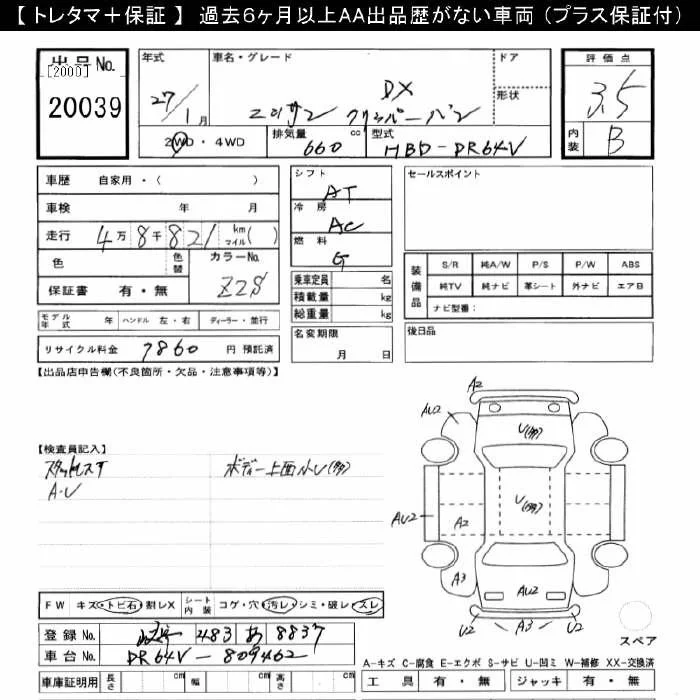 【 トレタマ＋保証 】 過去6ヶ月以上AA出品歴がない車両 (プラス保証付)
出品No. [2000] 20039
年式 27/1月
車名・グレード ニッサン クリッパーバン DX
ドア
形状
2WD・4WD
排気量 660 cc
型式 HBD-DR64V
評価点 3.5
内装 B
車歴 自家用・( )
車検 年 月
走行 4万8千821 km マイル( )
色 色替 カラーNo. Z2S
保証書 有・無
モデル年式 年 ハンドル 左・右 ディーラー・並行
リサイクル料金 7860 円 預託済
シフト AT
冷房 AC
燃料 G
乗車定員 名
積載量 kg
総重量 kg
名変期限 月 日
セールスポイント
装備品 S/R 純A/W P/S P/W ABS
純TV 純ナビ 革シート 外ナビ エアB
ナビ型番：
後日品
【出品店申告欄(不良箇所・欠品・注意事項等)】
【検査員記入】
スタッドレスT
A・U
ボディー上面小U(多)
A2
AU2
U(多)
U(多)
AU2
A2
A3
AU2
U2 A3 U2
スペア
FW キズ・トビ石・割レX シート内装 コゲ・穴・汚レ・シミ・破レ・スレ
登録No. 483 あ 8837
車台No. DR64V-809462
車庫証明用 長さ cm 幅 cm 高さ cm
A-キズ C-腐食 E-エクボ S-サビ U-凹ミ W-補修 XX-交換済
工具 有・無 ジャッキ 有・無